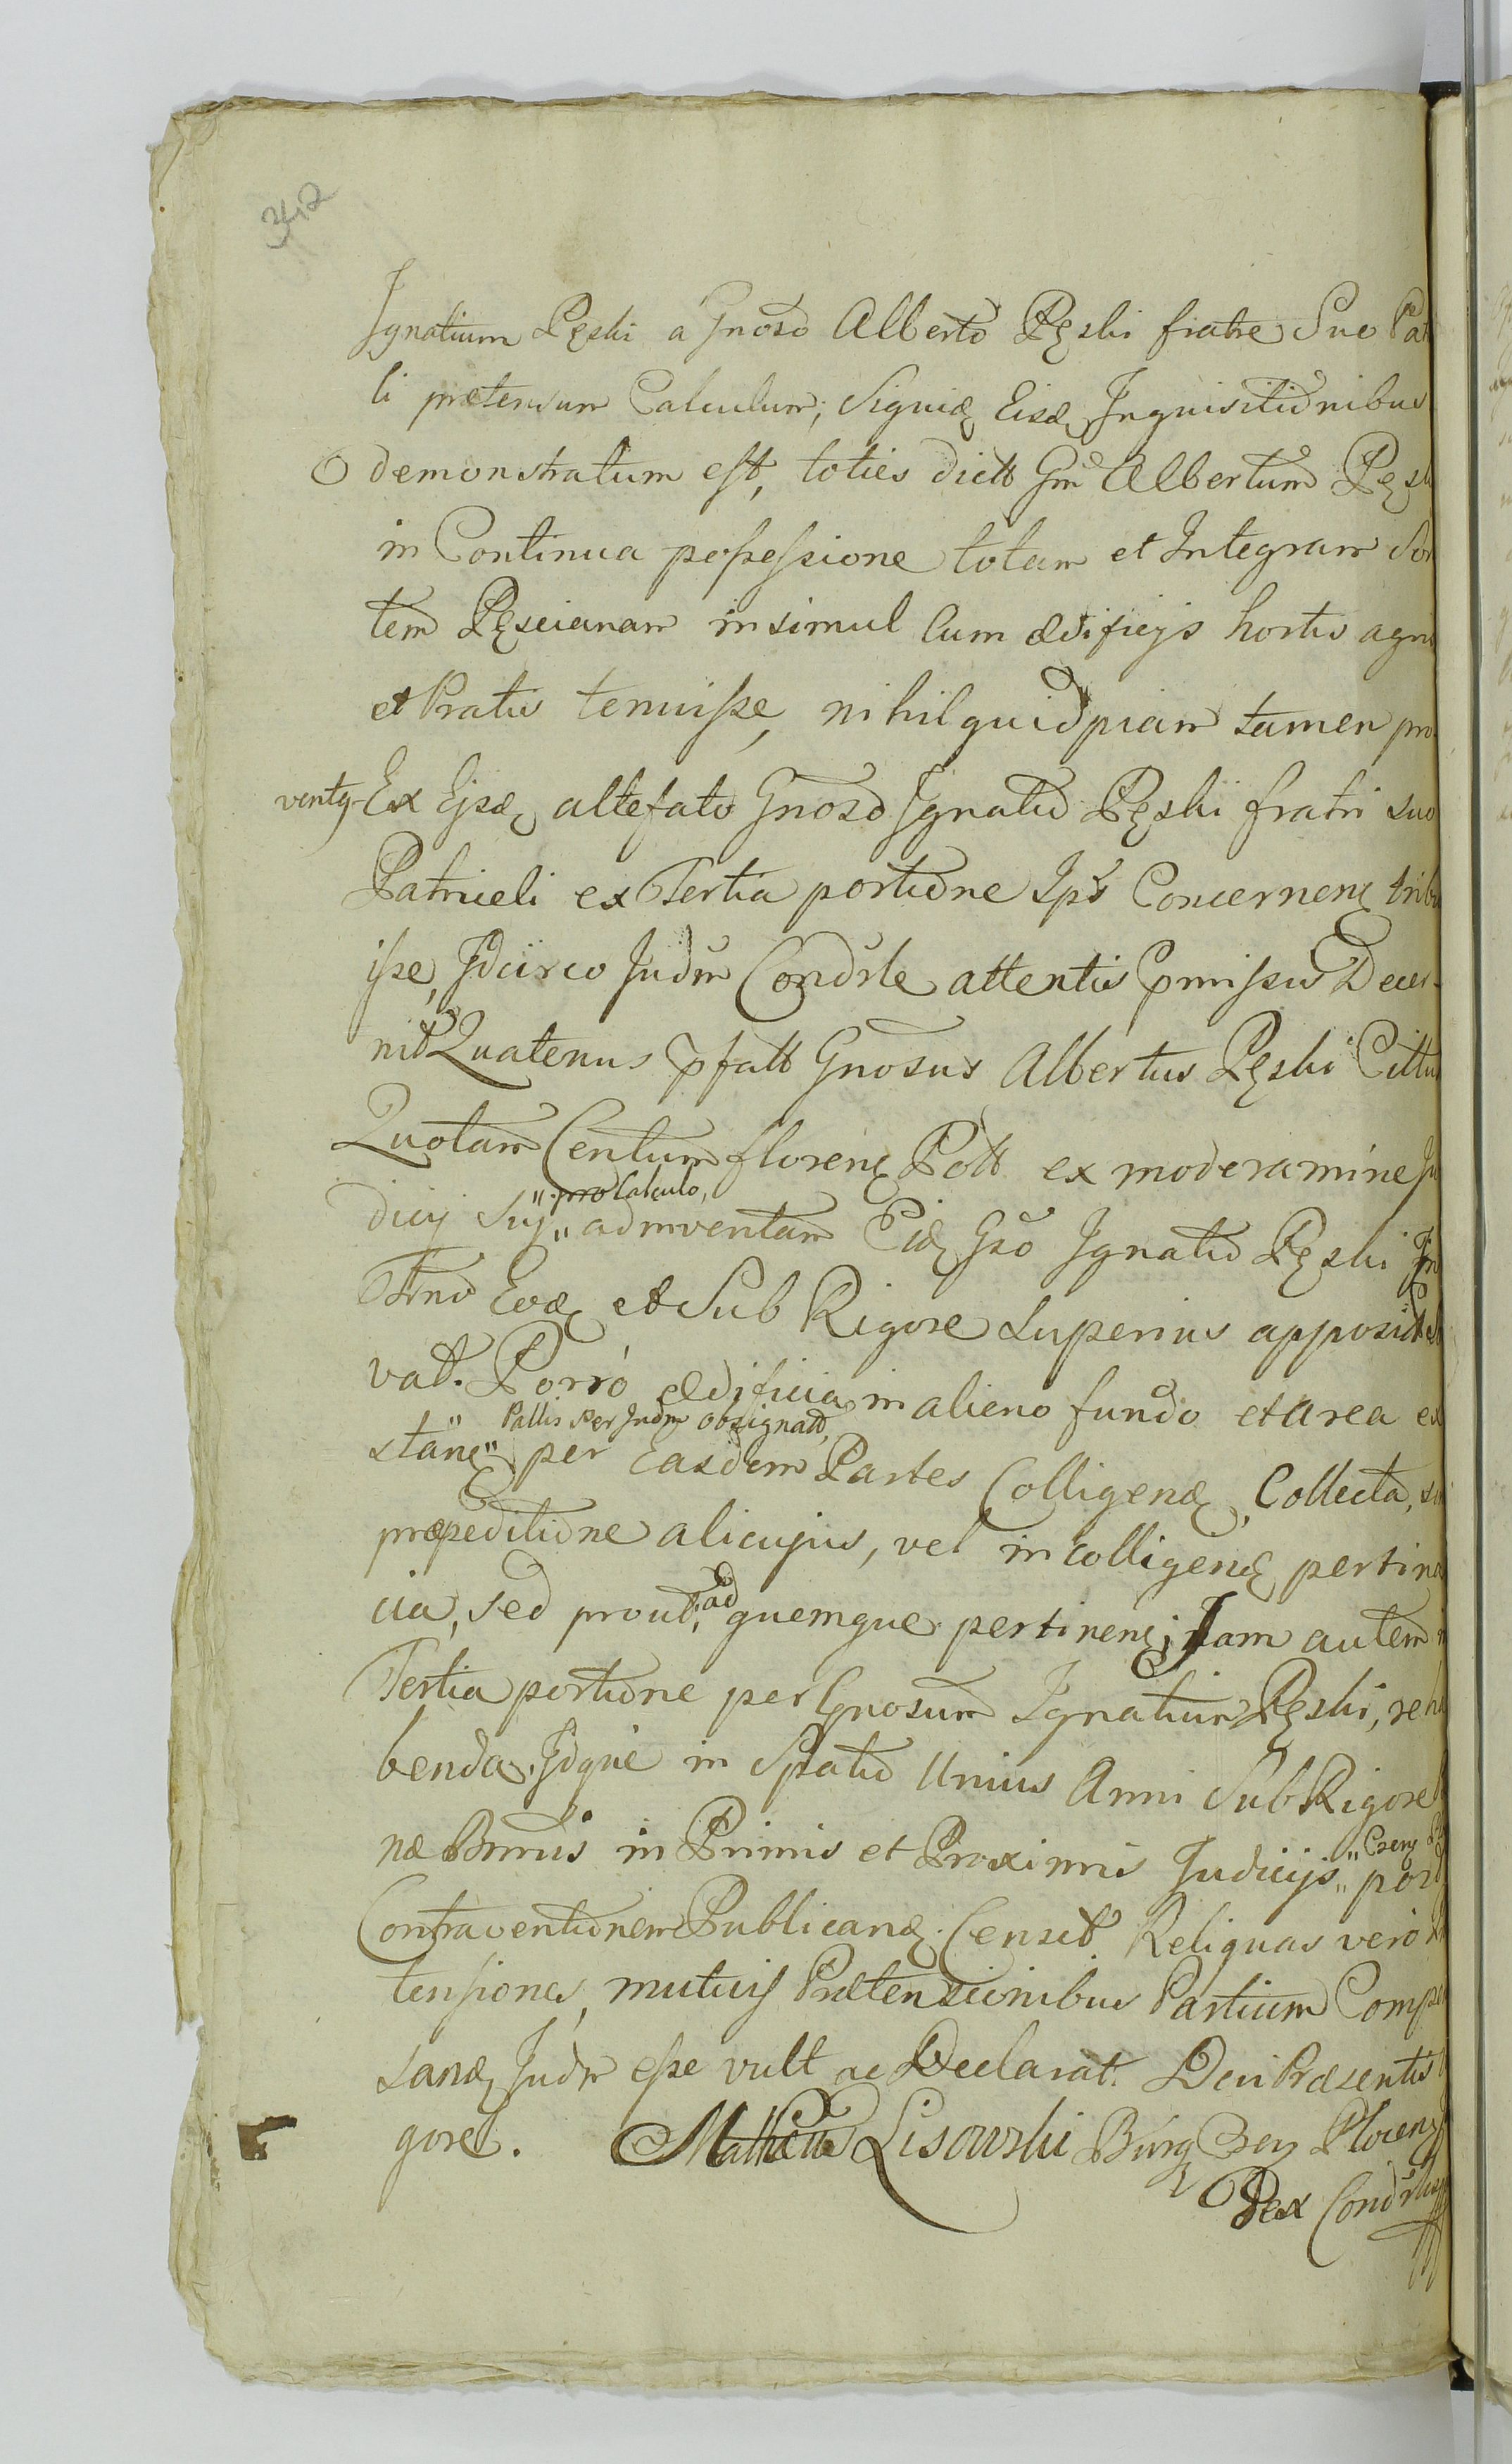 342
Ignatium Pęski a Gnoso Alberto Pęski fratre Suo Pat
li prætensum Calculum; Siquidę Eisdę Inquisitionibus
demonstratum est, toties dictt Gm Albertum Pęsk
in Continua possessione totam et Integram Sor
tem Pęscianam insimul Cum ædificijs hortis agris
et Pratis tenuisse, nihil quidpiam tamen pro
ventq Ex Ejsdę altefato Gnoso Ignatio Pęski fratri suo
Patrueli ex Tertia portione Ips Concernenę tribu
isse, Idcirco Judm Condrle attentis Pmissis Decer-
nit Quatenus pfatt Gnosus Albertus Pęski Citt
Quotam Centum florenę Poll ex moderamine Ju
dicij Sui " pro Calculo, " adinventam Eidę Gso Ignatio Pęski In
Ttno Eodę et Sub Rigore Superius apposit
vat. Porró ædificia in alieno fundo et Area ex
stanę " Pallis per Judm obsignatt, " per Easdem Partes Colligendę, Collecta, si
præpeditione alicujus, vel in colligenę pertina
cia, sed prout ad quemque pertinenę; Jam autem in
Tertia portione per Gnosum Ignatium Pęski, reha
benda. Idque in Spatio Unius Anni Sub Rigore
næ Bnnis in Primis et Proximis Judicijs " Crens " por
Contraventionem Publicandę. Censet Reliquas vero
tensiones, mutuis Prætensionibus Partium Compe
sandę Judm esse vult ac Declarat. Dcti Præsentis
gore. Matheus Lisowski Burg Crens Plocens
Pex Condrlis